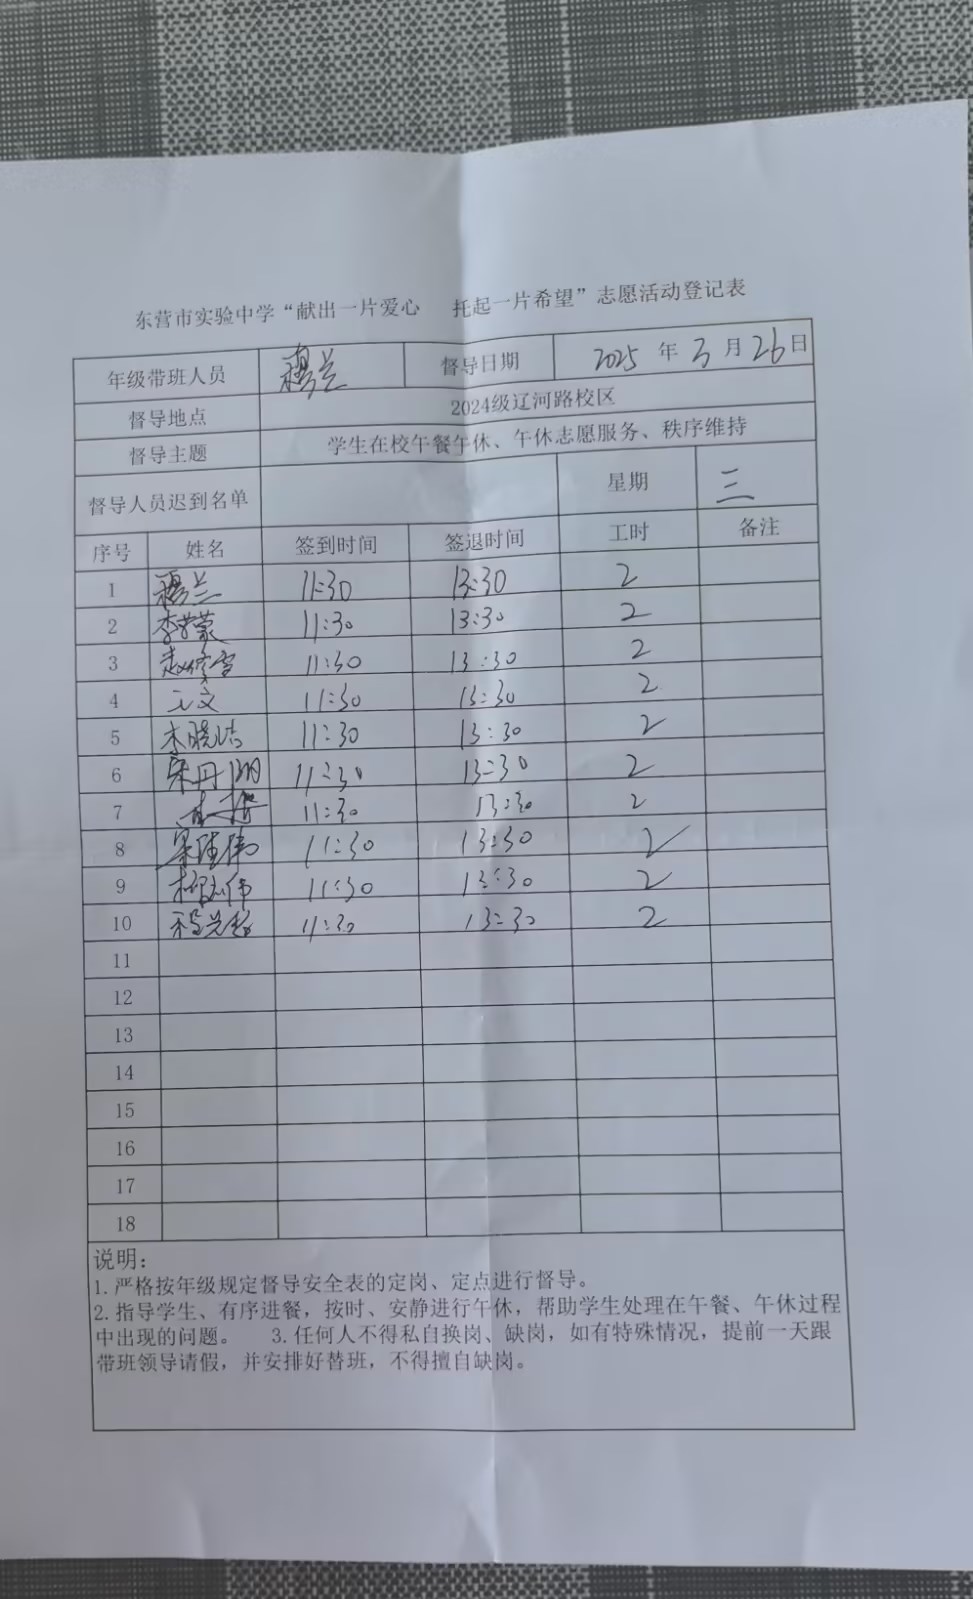 东营市实验中学“献出一片爱心 托起一片希望”志愿活动登记表
年级带班人员 穆兰 督导日期 2025 年 3 月 26 日
督导地点 2024级辽河路校区
督导主题 学生在校午餐午休、午休志愿服务、秩序维持
督导人员迟到名单 星期 三
序号 姓名 签到时间 签退时间 工时 备注
1 穆兰 11:30 13:30 2
2 李梦蒙 11:30 13:30 2
3 赵 雪 11:30 13:30 2
4 王文 11:30 13:30 2
5 李晓洁 11:30 13:30 2
6 宋丹 11:30 13:30 2
7 11:30 13:30 2
8 伟 11:30 13:30 2
9 伟 11:30 13:30 2
10 11:30 13:30 2
11
12
13
14
15
16
17
18
说明：
1.严格按年级规定督导安全表的定岗、定点进行督导。
2.指导学生、有序进餐，按时、安静进行午休，帮助学生处理在午餐、午休过程
中出现的问题。 3.任何人不得私自换岗、缺岗，如有特殊情况，提前一天跟
带班领导请假，并安排好替班，不得擅自缺岗。